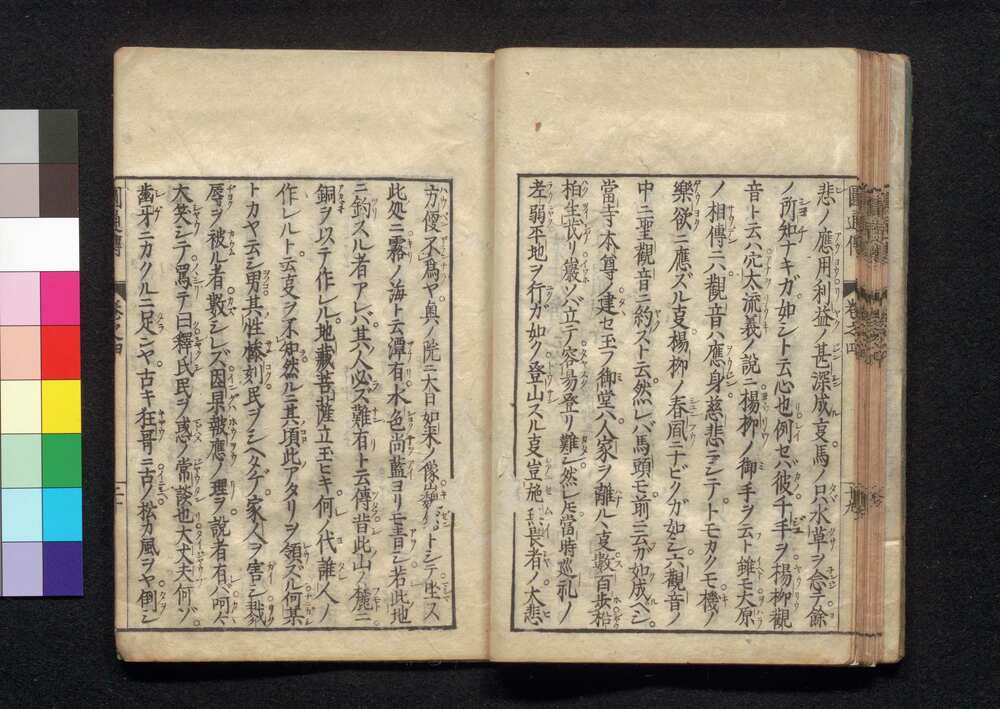 悲ノ應用利益ノ甚深成夏馬ノ只水草ヲ念テ餘
ノ所知ナキガ如シト云心也例セバ彼千手ヲ楊柳觀
音ト云ハ穴太流義ノ説ニ楊柳ノ御手ヲ云ト雖モ大原
ノ相傳ニハ觀音ハ應身慈悲ニシテトモカクモ機ノ
樂欲ニ應ズル夏楊柳ノ春風ニナビクガ如シ六觀音ノ
中ニ聖觀音ニ約スト云然レバ馬頭モ前ニ云ガ如成ベシ
當寺本尊ノ建セ玉フ御堂ハ人家ヲ離ル夏數百歩松
柏生茂リ巖ソバ立テ容易登リ難シ然レ𪜈當時巡礼ノ
老弱平地ヲ行ガ如ク登山スル夏豈施無畏者ノ大悲
方便不爲ヤ奥ノ院ニ大日如來ノ像巍然トシテ坐ス
此処ニ霧ノ海ト云潭有水色尚藍ヨリモ青シ若此地
ニ釣スル者アレバ其人必ズ難有ト云傳昔此山ノ麓ニ
銅ヲ以テ作レル地藏菩薩立玉ヒキ何ノ代誰人ノ
作レルト云夏ヲ不知然ルニ其項此アタリヲ領ズル何某
トカヤ云シ男其性慘刻民ヲシヘタゲ家人ヲ害シ戮
辱ヲ被ル者數シレズ因果報應ノ理ヲ説者有バ呵々
大笑シテ罵テ曰釋氏民ヲ惑ノ常談也大丈夫何ゾ
齒牙ニカクルニ足ンヤ古キ狂哥ニ古ノ松カ風ヲヤ倒シ